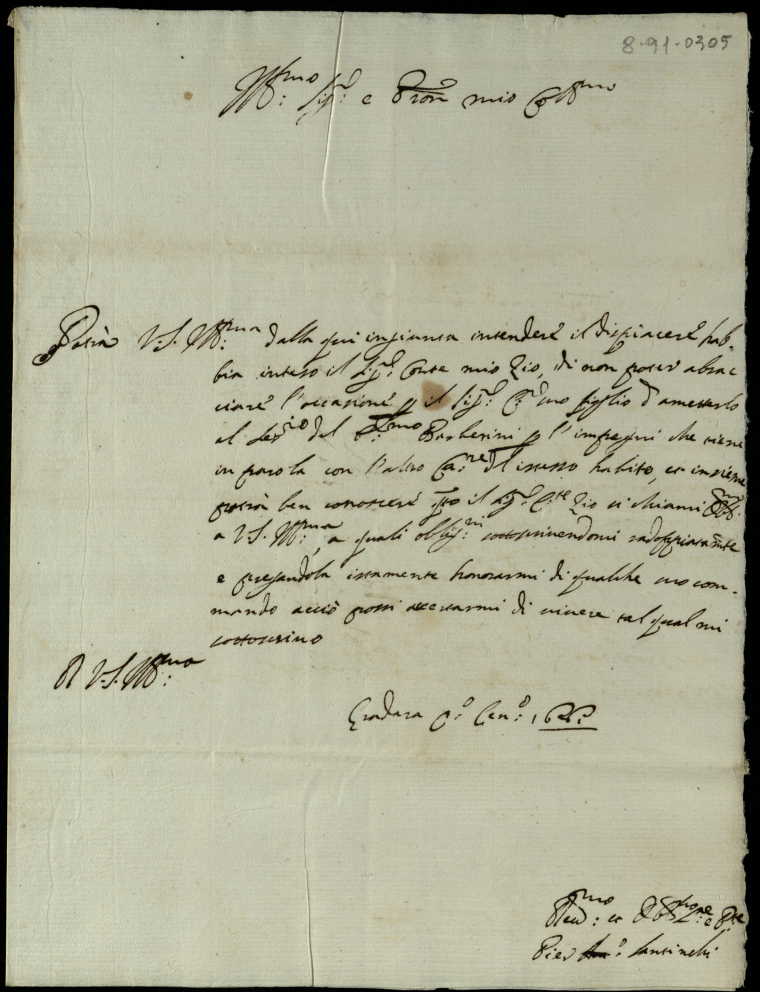 8-91-0305
Ill:mo Sig:r e Pron mio Coll:mo
Potrà V.S. Ill:ma dalla qui ingiunta intendere il dispiacere hab-
bia inteso il Sig:r Conte mio Zio, di non poter abrac
ciare l'occasione p il Sig:r suo figlio d'ametterlo
al del Barberini p l'impegni che tiene
in parola con l'altro dl istesso habito, et insieme
potrà ben conoscere qto il Sig:r C:te Zio si chiami
a V.S. Ill:ma, a quali sottoscrivendomi
e pregandola istamente honorarmi di qualche suo com-
mando acciò possi accertarmi di vivere tal qual mi
sottoscrivo
D V.S. Ill:ma
Gradara Gen:o
Dev:mo et
Pier Santinelli